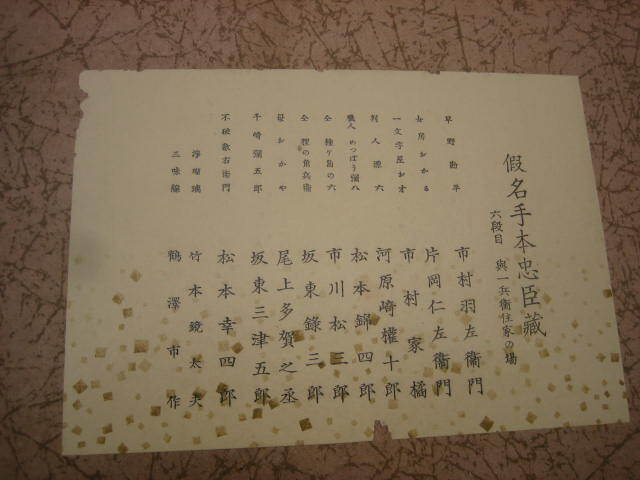 假名手本忠臣藏
六段目 與一兵衞住家の場
早野勘平 市村羽左衞門
女房おかる 片岡仁左衞門
一文字屋お才 市村家橘
判人源六 河原崎權十郎
職人めつぽう彌八 松本錦四郎
仝 種ケ島の六 市川松三郎
仝 狸の角兵衞 坂東錄三郎
母おかや 尾上多賀之丞
千崎彌五郎 坂東三津五郎
不破數右衞門 松本幸四郎
淨瑠璃 竹本鏡太夫
三味線 鶴澤市作